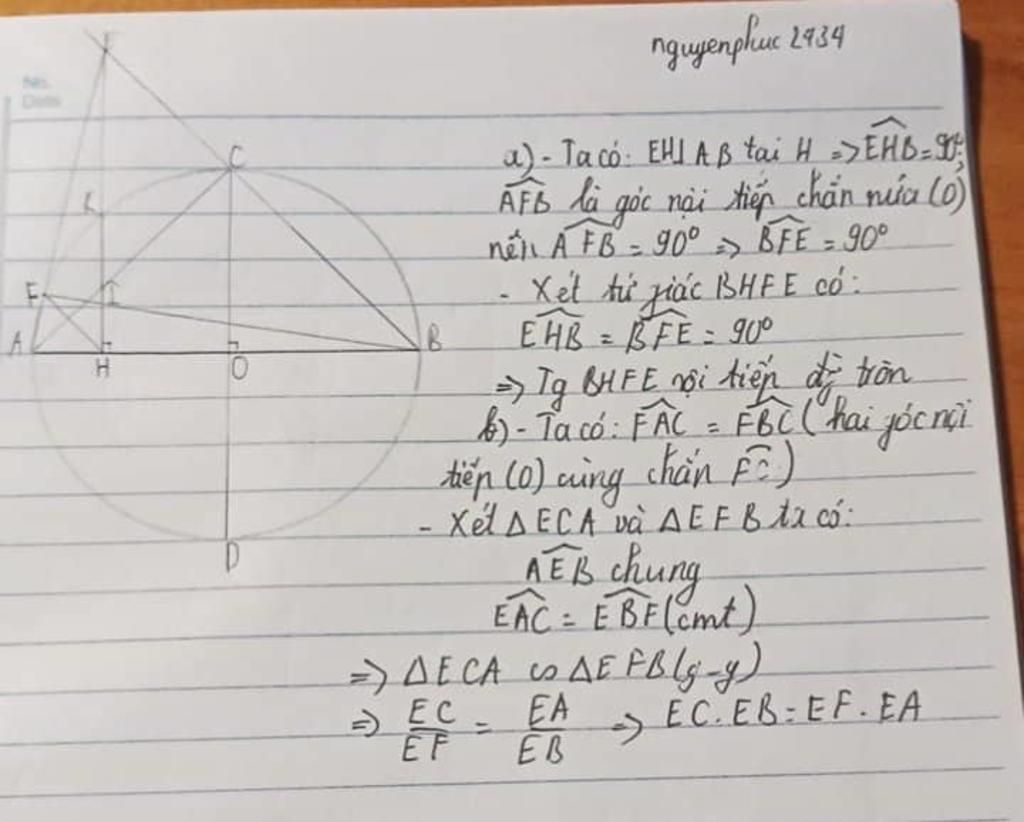 nguyenphuc 2434
No.
Date
E
C
K
F
I
A
H
O
B
D
a) - Ta có: EH⊥AB tại H => EHB = 90°,
AFB là góc nội tiếp chắn nửa (O)
nên AFB = 90° => BFE = 90°
- Xét tứ giác BHFE có:
EHB = BFE = 90°
=> Tg BHFE nội tiếp đg tròn
b) - Ta có: FAC = FBC (hai góc nội
tiếp (O) cùng chắn FC)
- Xét ΔECA và ΔEFB ta có:
AEB chung
EAC = EBF (cmt)
=> ΔECA ∽ ΔEFB (g-g)
=> EC/EF = EA/EB => EC.EB = EF.EA